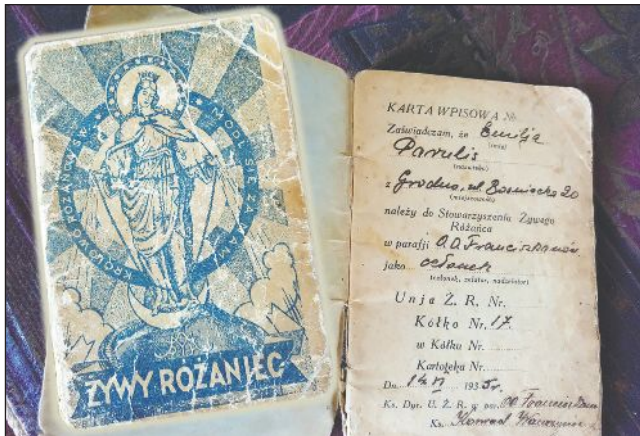 KRÓLOWO RÓŻAŃCA ŚW. MÓDL SIĘ ZA NAMI
ŻYWY RÓŻANIEC
KARTA WPISOWA №
Zaświadczam, że Emilja
(imię)
Parulis
(nazwisko)
z Grodna, ul.
(miejscowość)
należy do Stowarzyszenia Żywego
Różańca
w parafji O.O. Franciszkanów
jako członek
(członek, zelator, nadzelator)
Unja Ż. R. Nr.
Kółko Nr. 17.
w Kółku Nr.
Kartoteka Nr.
Dn. 14 VI 1935 r.
Ks. Dyr. U. Ż. R. w par. OO
Ks. Konrad